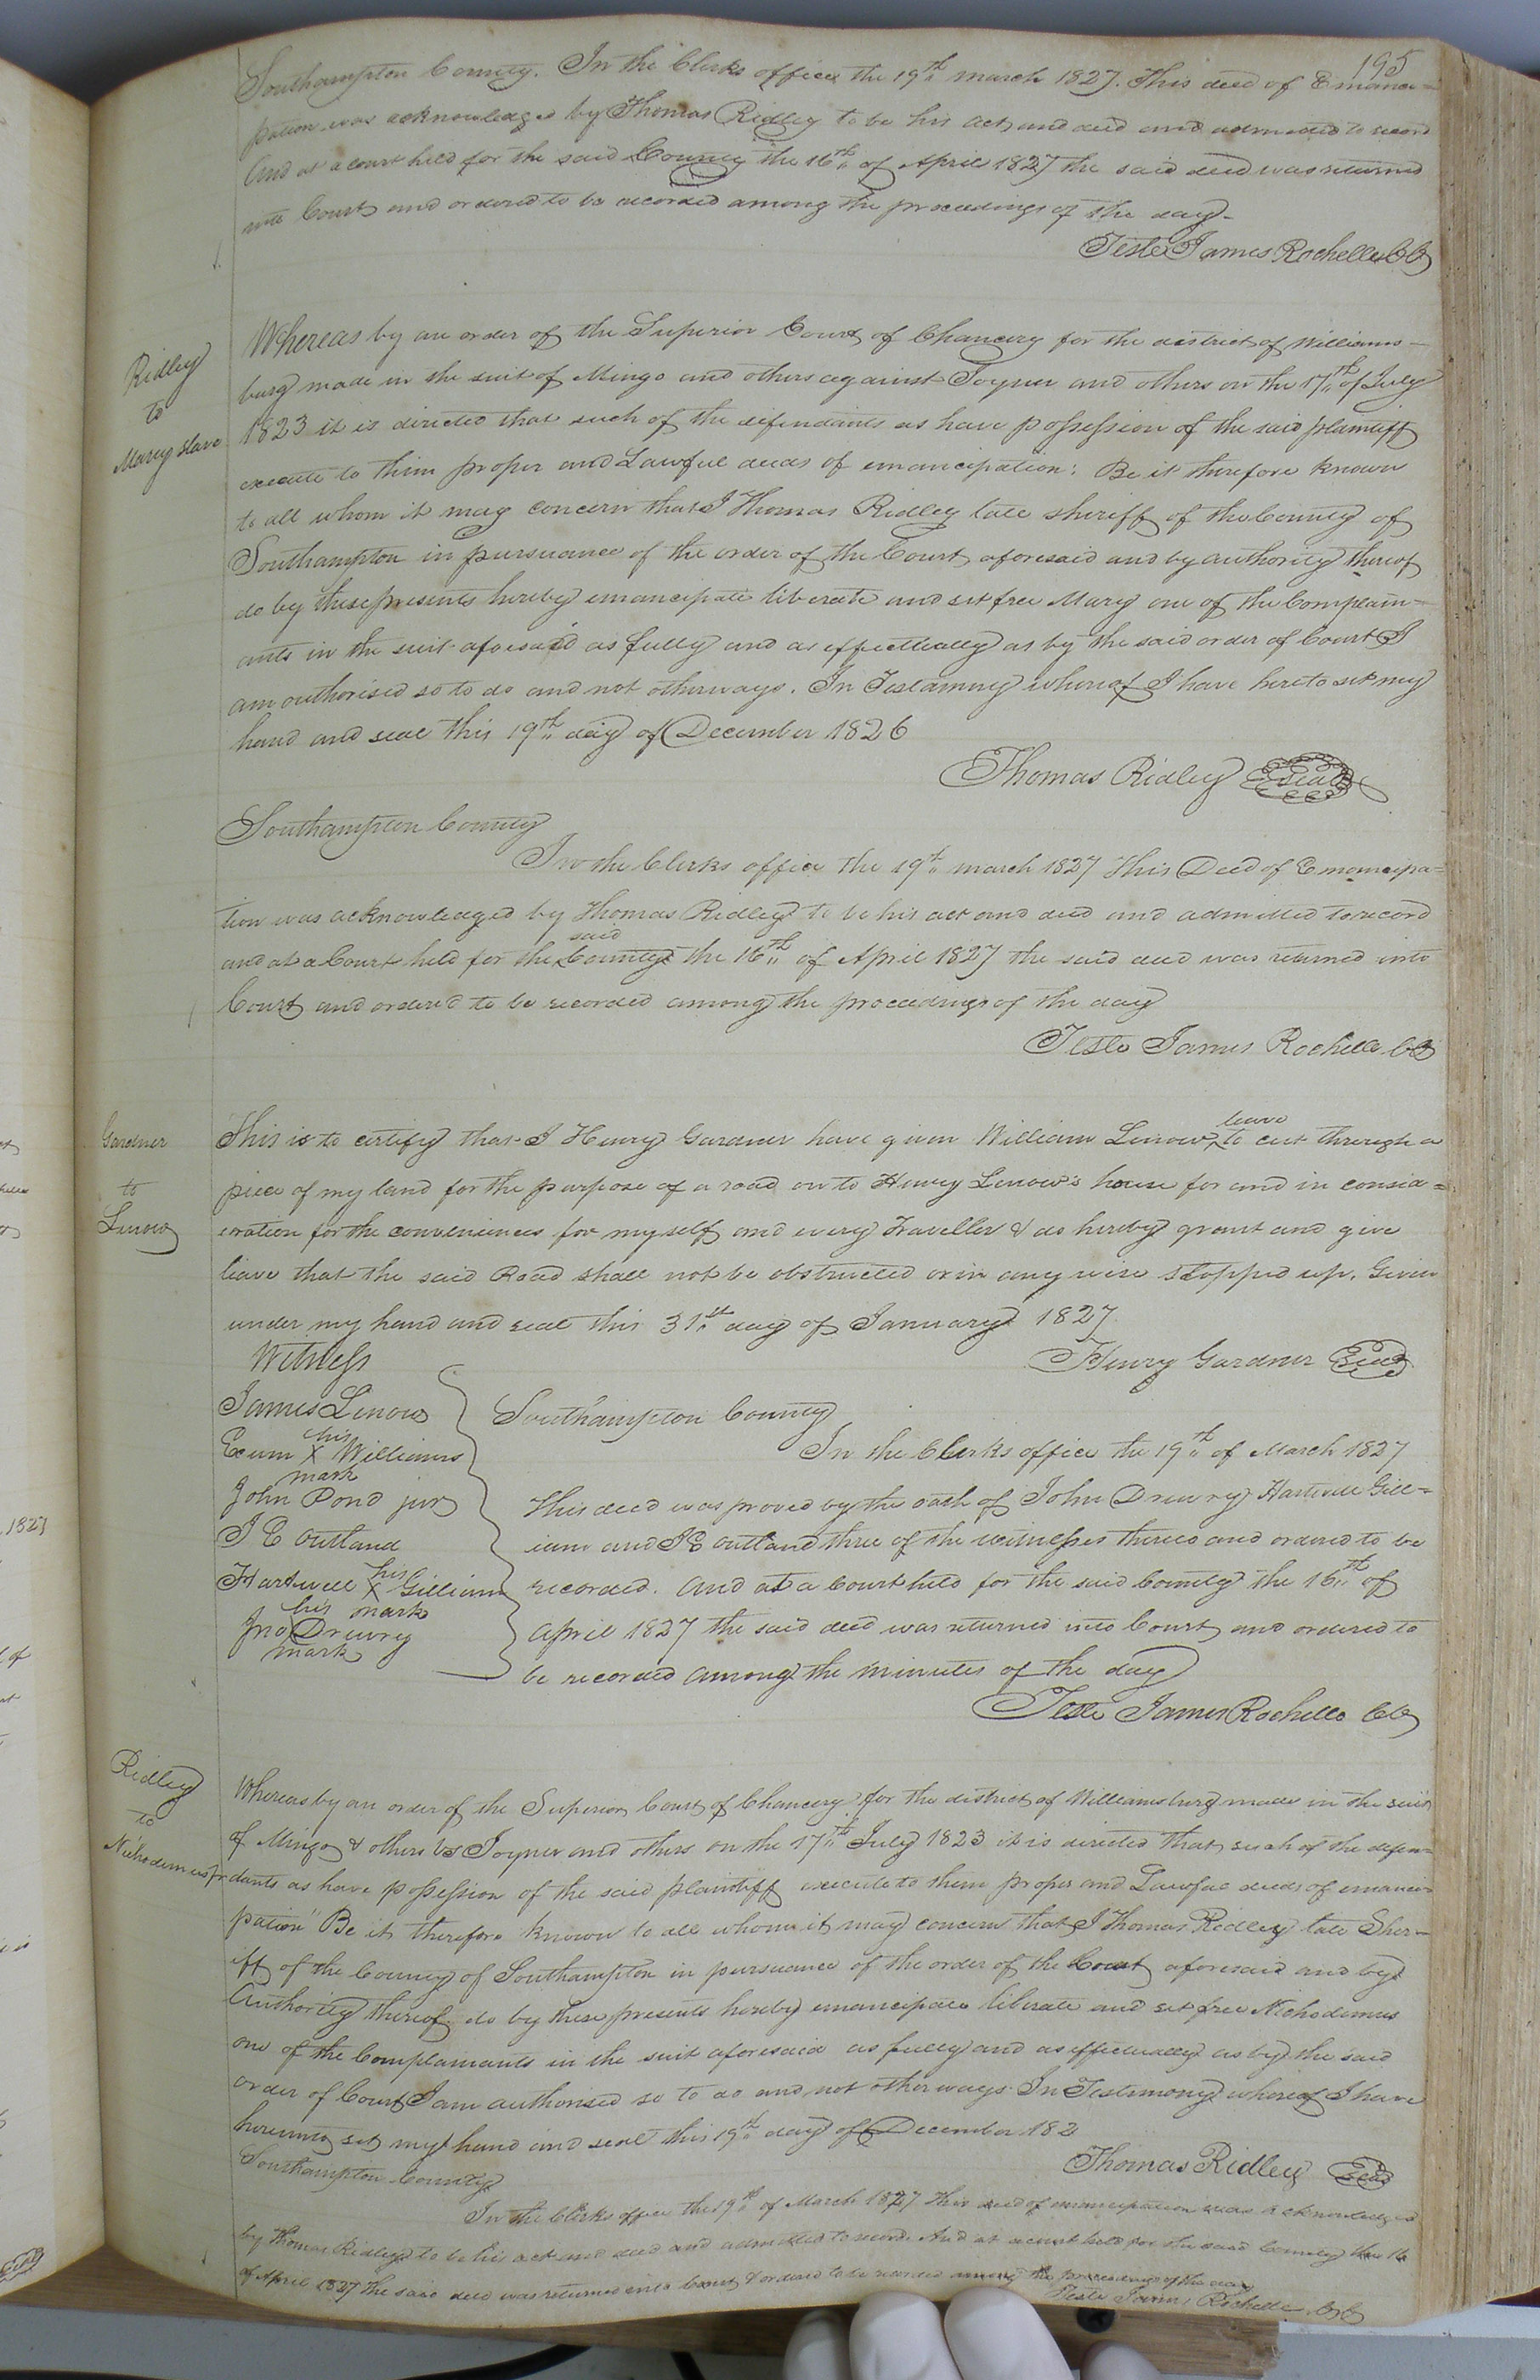 195
Southampton County. In the Clerks office the 19th march 1827. This deed of Emanci=
pation was acknowledged by Thomas Ridley to be his act and deed and admitted to record
And at a court held for the said County the 16th of April 1827 the said deed was returned
into Court and ordered to be recorded among the proceedings of the day-
Teste James Rochelle CC
Ridley
to
Mary slave
Whereas by an order of the Superior Court of Chancery for the district of Williams-
burg made in the suit of Mingo and others against Joyner and others on the 17th of July
1823 it is directed that such of the defendants as have possession of the said plaintiff
execute to them proper and Lawful deeds of emancipation: Be it therefore known
to all whom it may concern that I Thomas Ridley late sheriff of the County of
Southampton in pursuance of the order of the Court aforesaid and by authority thereof
do by these presents hereby emancipate liberate and set free Mary one of the Complain=
ants in the suit aforesaid as fully and as effectually as by the said order of Court I
am authorised so to do and not otherways. In Testamony whereof I have hereto set my
hand and seal this 19th day of December 1826
Thomas Ridley Seal
Southampton County
In the Clerks office the 19th march 1827 This Deed of Emancipa=
tion was acknowledged by Thomas Ridley to be his act and deed and admitted to record
said
and at a Court held for the County the 16th of April 1827 the said deed was returned into
Court and ordered to be recorded among the proceedings of the day
Teste James Rochelle CC
Gardner
to
Lenow
leave
This is to certify that I Henry Gardner have given William Lenow to cut through a
piece of my land for the purpose of a road on to Henry Lenow's house for and in consid=
eration for the conveniences for myself and every Traveller & do hereby grant and give
leave that the said Road shall not be obstructed or in any wise stopped up. Given
under my hand and seal this 31st day of January 1827
Witness
Henry Gardner Seal
James Lenow
his
Exum X Williams
mark
John Pond junr
J E Outland
his
Hartwell X Gilliam
mark
his
Jno Drewry
mark
Southampton County
In the Clerks office the 19th of March 1827
This deed was proved by the oath of John Drewry Hartwell Gill=
iam and J E outland three of the witnesses thereto and ordered to be
recorded. And at a Court held for the said County the 16th of
April 1827 the said deed was returned into Court and ordered to
be recorded among the minutes of the day
Teste James Rochelle CC
Ridley
to
Nichodemus
Whereas by an order of the Superior Court of Chancery for the district of Williamsburg made in the suit
of Mingo & others vs Joyner and others on the 17th July 1823 it is directed that such of the defen=
dants as have possession of the said plaintiff execute to them proper and Lawful deeds of emanci=
pation" Be it therefore known to all whom it may concern that I Thomas Ridley late Sher=
iff of the County of Southampton in pursuance of the order of the Court aforesaid and by
Authority thereof do by these presents hereby emancipate liberate and set free Nichodemus
one of the Complainants in the suit aforesaid as fully and as effectually as by the said
order of Court I am authorised so to do and not otherways In Testimony whereof I have
hereunto set my hand and seal this 19th day of December 182
Thomas Ridley Seal
Southampton County
In the Clerks office the 19th of March 1827 This deed of emancipation was acknowledged
by Thomas Ridley to be his act and deed and admitted to record. And at a court held for the said County the 16
of April 1827 the said deed was returned into Court & ordered to be recorded among the proceedings of the day
Teste James Rochelle CC